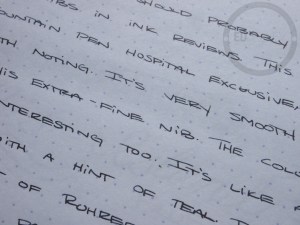 SHOULD PROBABLY
NIBS IN INK REVIEWS THIS
FOUNTAIN PEN HOSPITAL EXCLUSIVE,
NOTING. IT'S VERY SMOOTH
HIS EXTRA-FINE NIB. THE COLO
INTERESTING TOO. IT'S LIKE A
WITH A HINT OF TEAL.
OF